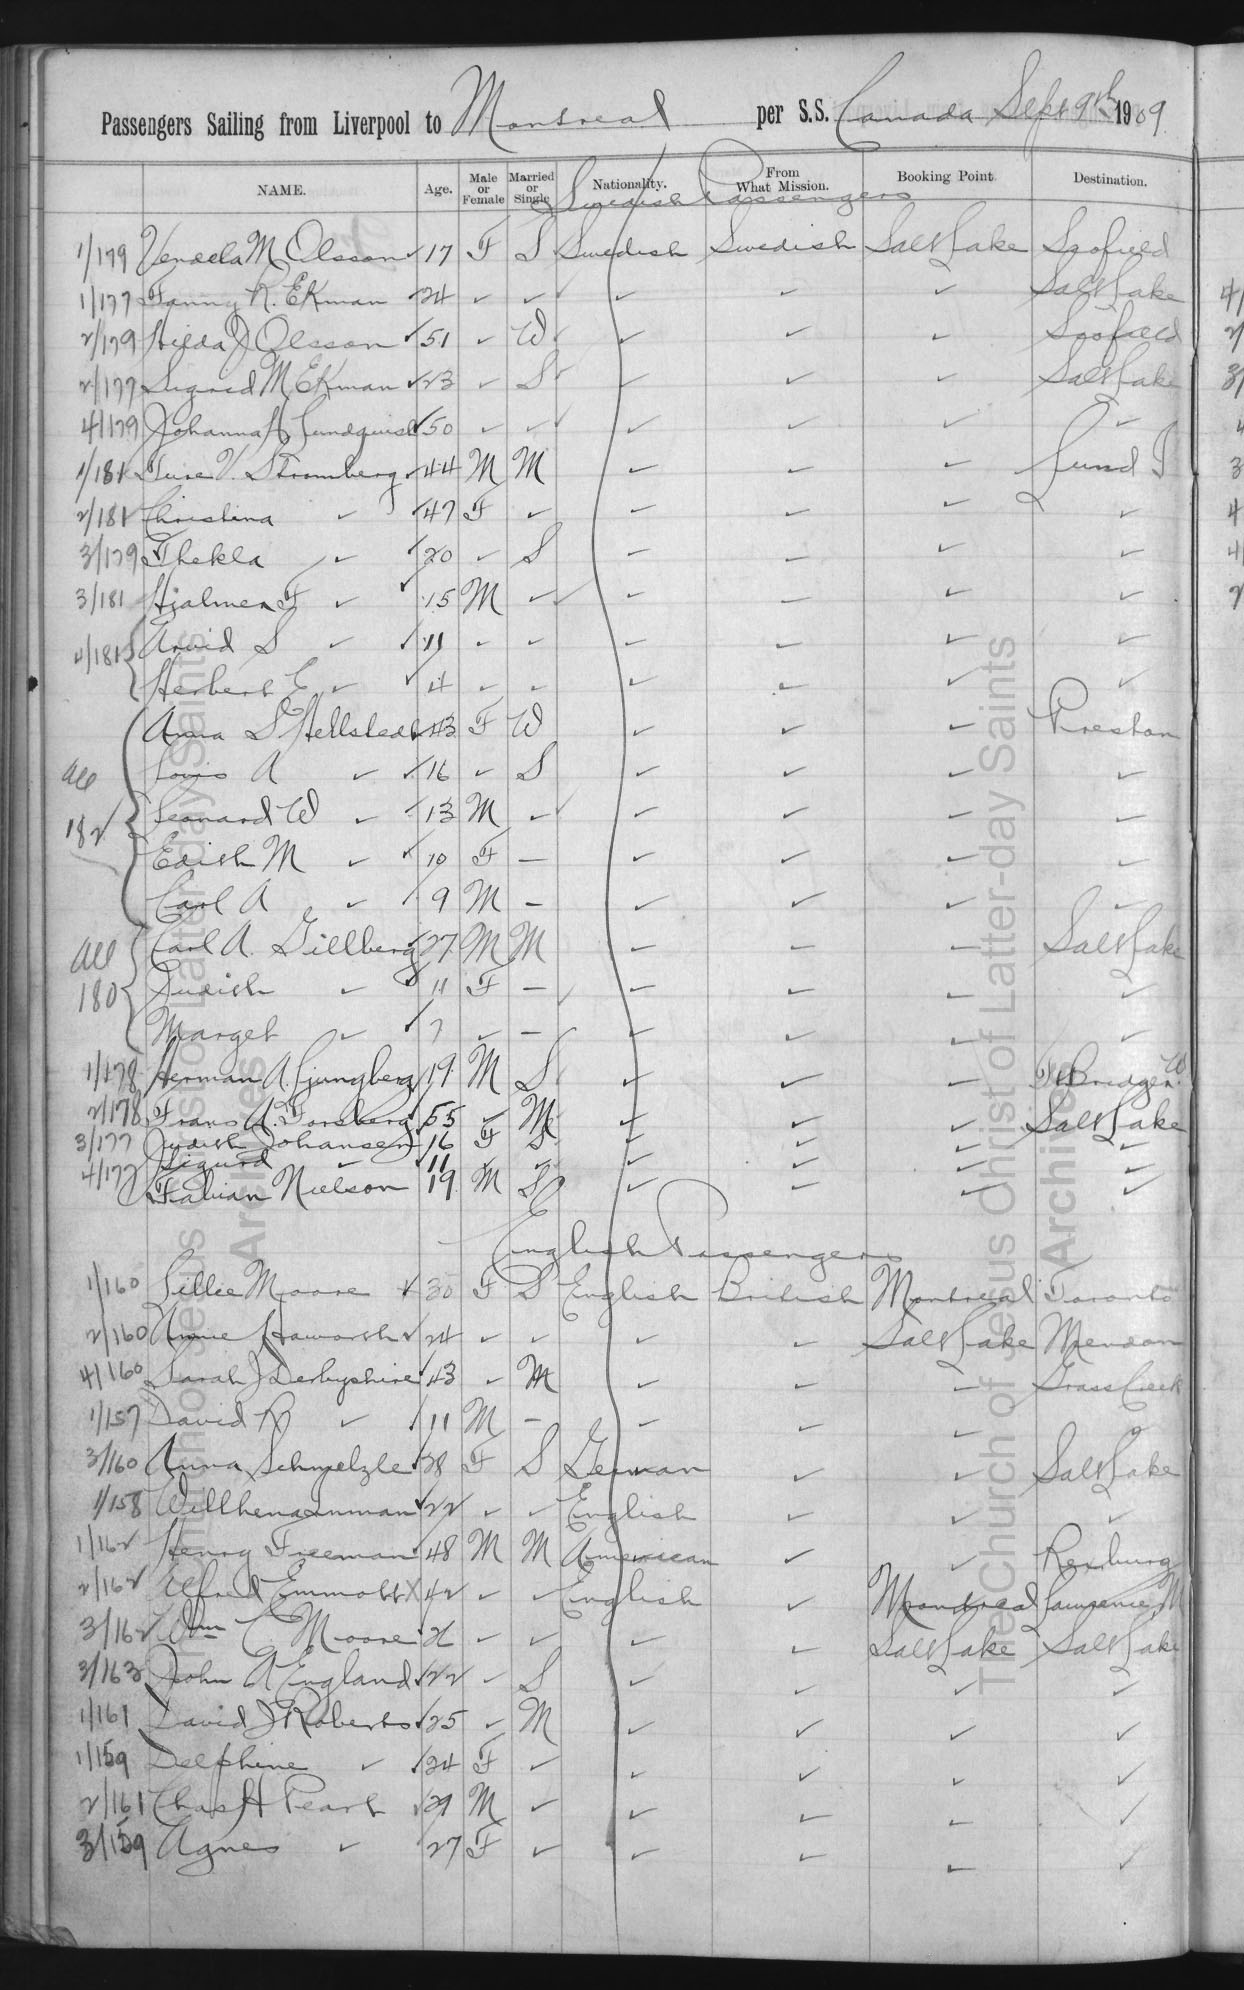 Passengers Sailing from Liverpool to Montreal per S.S. Canada Sept 9th 1909
NAME. Age. Male or Female Married or Single Nationality. From What Mission. Booking Point. Destination.
Swedish Passengers
1/179 Vendela M Olsson ✓ 17 F S Swedish Swedish Salt Lake Scofield
1/177 Fanny R. Ekman ✓ 24 ✓ ✓ ✓ ✓ ✓ Salt Lake
2/179 Hilda J Olsson ✓ 51 ✓ W ✓ ✓ ✓ Scofield
2/177 Sigrid M Ekman ✓ 23 ✓ S ✓ ✓ ✓ Salt Lake
4/179 Johanna A Lundquist ✓ 50 ✓ ✓ ✓ ✓ ✓ ✓
1/181 Ture V. Stromberg ✓ 44 M M ✓ ✓ ✓ Lund I
2/181 Christina ✓ ✓ 47 F ✓ ✓ ✓ ✓ ✓
3/179 Thekla ✓ ✓ 20 ✓ S ✓ ✓ ✓ ✓
3/181 Hjalmer F ✓ ✓ 15 M ✓ ✓ ✓ ✓ ✓
4/181 { Arvid S ✓ ✓ 11 ✓ ✓ ✓ ✓ ✓ ✓
Herbert E ✓ ✓ 4 ✓ ✓ ✓ ✓ ✓ ✓
Anna S Hellstedt ✓ 43 F W ✓ ✓ ✓ Preston
all Lovis A ✓ ✓ 16 ✓ S ✓ ✓ ✓ ✓
182 Leonard W ✓ ✓ 13 M ✓ ✓ ✓ ✓ ✓
Edith M ✓ ✓ 10 F — ✓ ✓ ✓ ✓
Carl A ✓ ✓ 9 M — ✓ ✓ ✓ ✓
all Carl A. Gillberg ✓ 27 M M ✓ ✓ ✓ Salt Lake
180 Judith ✓ ✓ 11 F — ✓ ✓ ✓ ✓
Marget ✓ ✓ 7 ✓ — ✓ ✓ ✓ ✓
1/178 Herman A. Ljungberg ✓ 19 M S ✓ ✓ ✓ Ft Bridger W
2/178 Frans A. Forsberg ✓ 55 ✓ M ✓ ✓ ✓ Salt Lake
3/177 Judith Johansen 16 F S ✓ ✓ ✓ ✓
Sigurd ✓ 11 ✓ ✓ ✓ ✓ ✓ ✓
4/177 Fabian Nielson 19 M S ✓ ✓ ✓ ✓
English Passengers
1/160 Lillie Moore ✓ 30 F S English British Montreal Toronto
2/160 Annie Haworth ✓ 24 ✓ ✓ ✓ ✓ Salt Lake Mendon
4/160 Sarah J Derbyshire ✓ 43 ✓ M ✓ ✓ ✓ Grass Creek
1/157 David R ✓ ✓ 11 M — ✓ ✓ ✓
3/160 Anna Schmelzle ✓ 28 F S German ✓ ✓ Salt Lake
1/158 Willhena Inman ✓ 22 ✓ ✓ English ✓ ✓ ✓
1/162 Henry Freeman ✓ 48 M M American ✓ ✓ Rexburg
2/162 Alfred Emmott X 42 ✓ ✓ English ✓ Montreal Lawrence M
3/162 Wm C Moore ✓ ✓ ✓ ✓ ✓ Salt Lake Salt Lake
3/163 John A England ✓ 22 ✓ S ✓ ✓ ✓ ✓
1/161 David J Roberts ✓ 25 ✓ M ✓ ✓ ✓ ✓
1/159 Delphine ✓ ✓ 24 F ✓ ✓ ✓ ✓ ✓
2/161 Chas H Peart ✓ 29 M ✓ ✓ ✓ ✓ ✓
3/159 Agnes ✓ 27 F ✓ ✓ ✓ ✓ ✓
The Church of Jesus Christ of Latter-day Saints
Archives